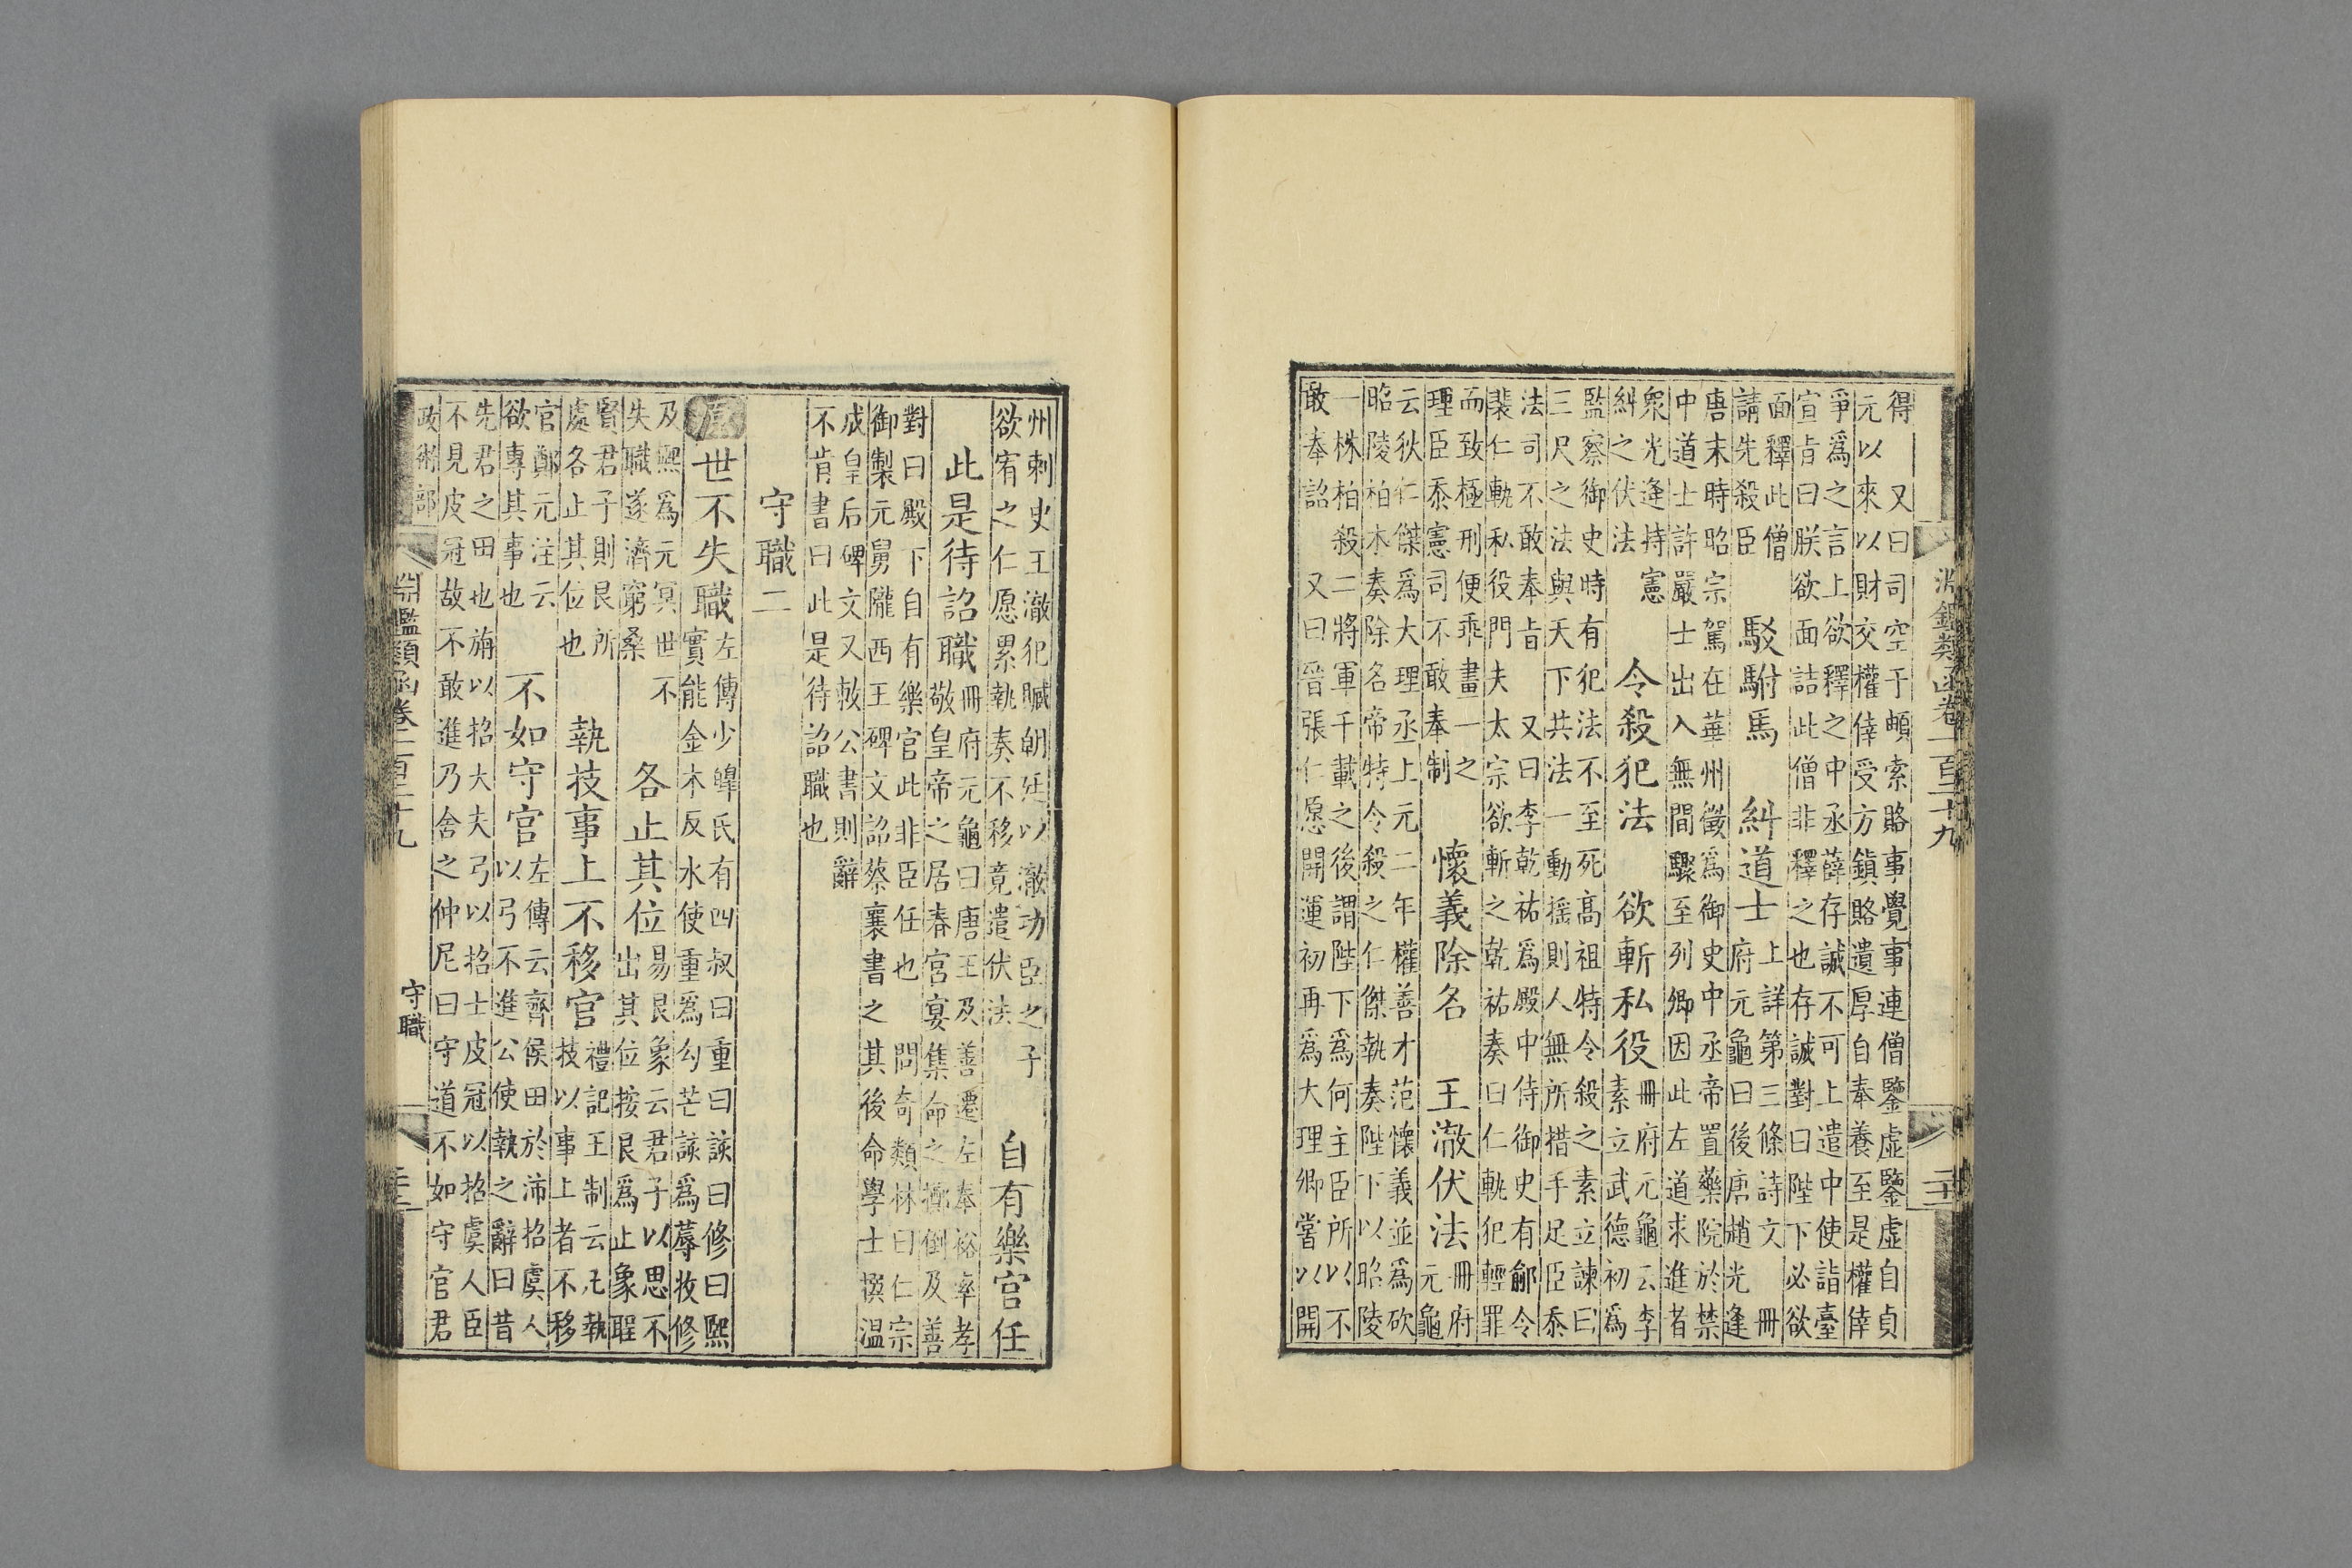 淵鑑類函卷一百二十九
得 又曰司空于頔索賂事覺事連僧鑒虛鑒虛自貞
元以來以財交權倖受方鎮賂遺厚自奉養至是權倖
爭爲之言上欲釋之中丞薛存誠不可上遣中使詣臺
宣旨曰朕欲面詰此僧非釋之也存誠對曰陛下必欲
面釋此僧
請先殺臣
駁駙馬 糾道士
上詳第三條詩文 冊
府元龜曰後唐趙光逢
唐末時昭宗駕在華州徵爲御史中丞帝置藥院於禁
中道士許嚴士出入無間驟至列卿因此左道求進者
衆光逢持憲
糾之伏法
令殺犯法 欲斬私役
冊府元龜云李
素立武德初爲
監察御史時有犯法不至死高祖特令殺之素立諫曰
三尺之法與天下共法一動搖則人無所措手足臣忝
法司不敢奉旨 又曰李乾祐爲殿中侍御史有鄃令
裴仁軌私役門夫太宗欲斬之乾祐奏曰仁軌犯輕罪
而致極刑便乖畫一之
理臣忝憲司不敢奉制
懷義除名 王澈伏法
冊府
元龜
云狄仁傑爲大理丞上元二年權善才范懷義並爲砍
昭陵柏木奏除名帝特令殺之仁傑執奏陛下以昭陵
一株柏殺二將軍千載之後謂陛下爲何主臣所以不
敢奉詔 又曰晉張仁愿開運初再爲大理卿嘗以開
州刺史王澈犯贓朝廷以澈功臣之子
欲宥之仁愿累執奏不移竟遣伏法
自有樂官任
此是待詔職
冊府元龜曰唐王及善遷左奉裕率孝
敬皇帝之居春宮宴集命之擲倒及善
對曰殿下自有樂官此非臣任也 問奇類林曰仁宗
御製元舅隴西王碑文詔蔡襄書之其後命學士撰溫
成皇后碑文又敕公書則辭
不肯書曰此是待詔職也
守職二
原 世不失職
左傳少皡氏有四叔曰重曰該曰修曰熙
實能金木反水使重爲勾芒該爲蓐收修
及熙爲元冥世不
失職遂濟窮桑
各止其位
易艮象云君子以思不
出其位按艮爲止象聖
賢君子則艮所
處各止其位也
執技事上不移官
禮記王制云凡執
技以事上者不移
官鄭元注云
欲專其事也
不如守官
左傳云齊侯田於沛招虞人
以弓不進公使執之辭曰昔
先君之田也旃以招大夫弓以招士皮冠以招虞人臣
不見皮冠故不敢進乃舍之仲尼曰守道不如守官君
政術部
淵鑑類函卷一百二十九
守職